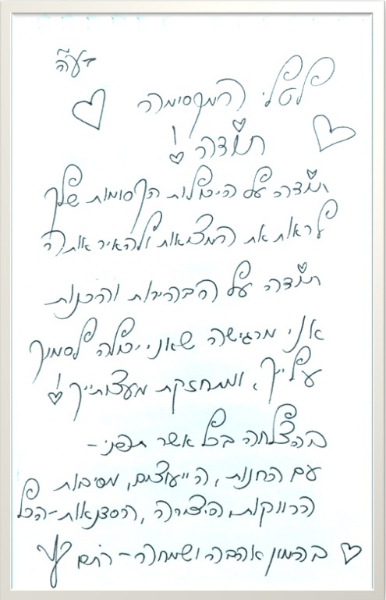 בעה"י
לטלי המקסימה
תודה!
תודה על היכולות הקסומות שלך
לראות את המציאות ולהאיר אותה
תודה על הבהירות והכנות
אני מרגישה שאני יכולה לסמוך
עלייך, ומתחזקת מעצותייך!
בהצלחה בכל אשר תפני-
עם החנות, הייעוצים, מסיבות
הרווקות, היצירה, הסדנאות-הכל
בהמון אהבה ושמחה - רותם